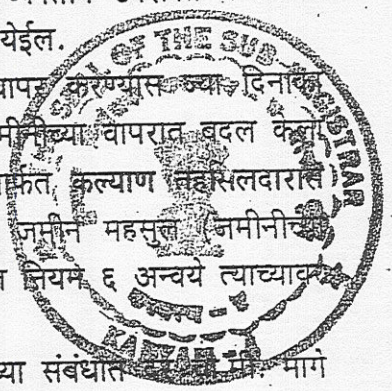 येईल.
वापर करण्यास ज्या दिनांका
मीनीच्या वापरात बदल केला
र्फत कल्याण तहसिलदारास
जमीन महसुल (जमीनीच्या
नियम ६ अन्वये त्याच्यावर
च्या संबंधात मी. मागे
SEAL OF THE SUB-REGISTRAR
KALYAN